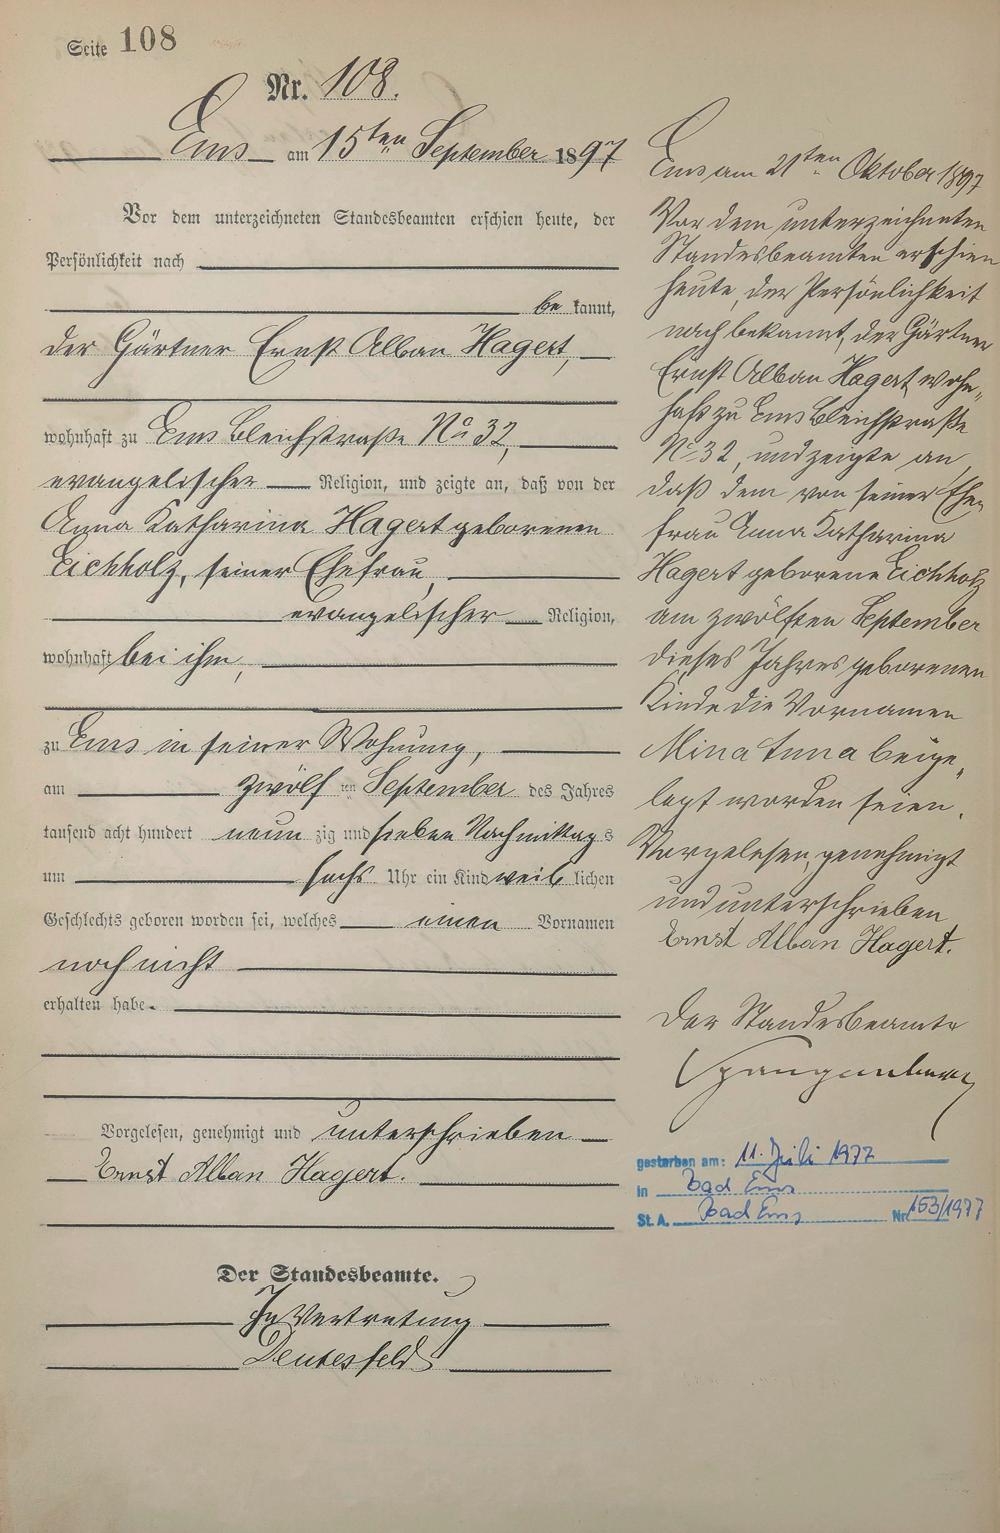 Seite 108
Nr. 108.
Ems am 15ten September 1897
Vor dem unterzeichneten Standesbeamten erschien heute, der
Persönlichkeit nach
be kannt,
der Gärtner Ernst Alban Hagert,
wohnhaft zu Ems Bleichstraße No 32,
evangelischer Religion, und zeigte an, daß von der
Anna Katharina Hagert geborenen
Eichholz, seiner Ehefrau,
evangelischer Religion,
wohnhaft bei ihm,
zu Ems in seiner Wohnung,
am zwölf ten September des Jahres
tausend acht hundert neun zig und sieben Nachmittag s
um sechs Uhr ein Kind weib lichen
Geschlechts geboren worden sei, welches einen Vornamen
noch nicht
erhalten habe.
Vorgelesen, genehmigt und unterschrieben
Ernst Alban Hagert.
Der Standesbeamte.
In Vertretung
Deutesfeld
Ems am 21ten Oktober 1897
Vor dem unterzeichneten
Standesbeamten erschien
heute, der Persönlichkeit
nach bekannt, der Gärtner
Ernst Alban Hagert, wohn-
haft zu Ems Bleichstraße
No 32, und zeigte an,
daß dem von seiner Ehe-
frau Anna Katharina
Hagert geborene Eichholz
am zwölften September
dieses Jahres geborenen
Kinde die Vornamen
Mina Anna beige-
legt worden seien.
Vorgelesen, genehmigt
und unterschrieben
Ernst Alban Hagert.
Der Standesbeamte
Spangenberg
gestorben am: 11. Juli 1977
in Bad Ems
St. A. Bad Ems Nr. 153/1977